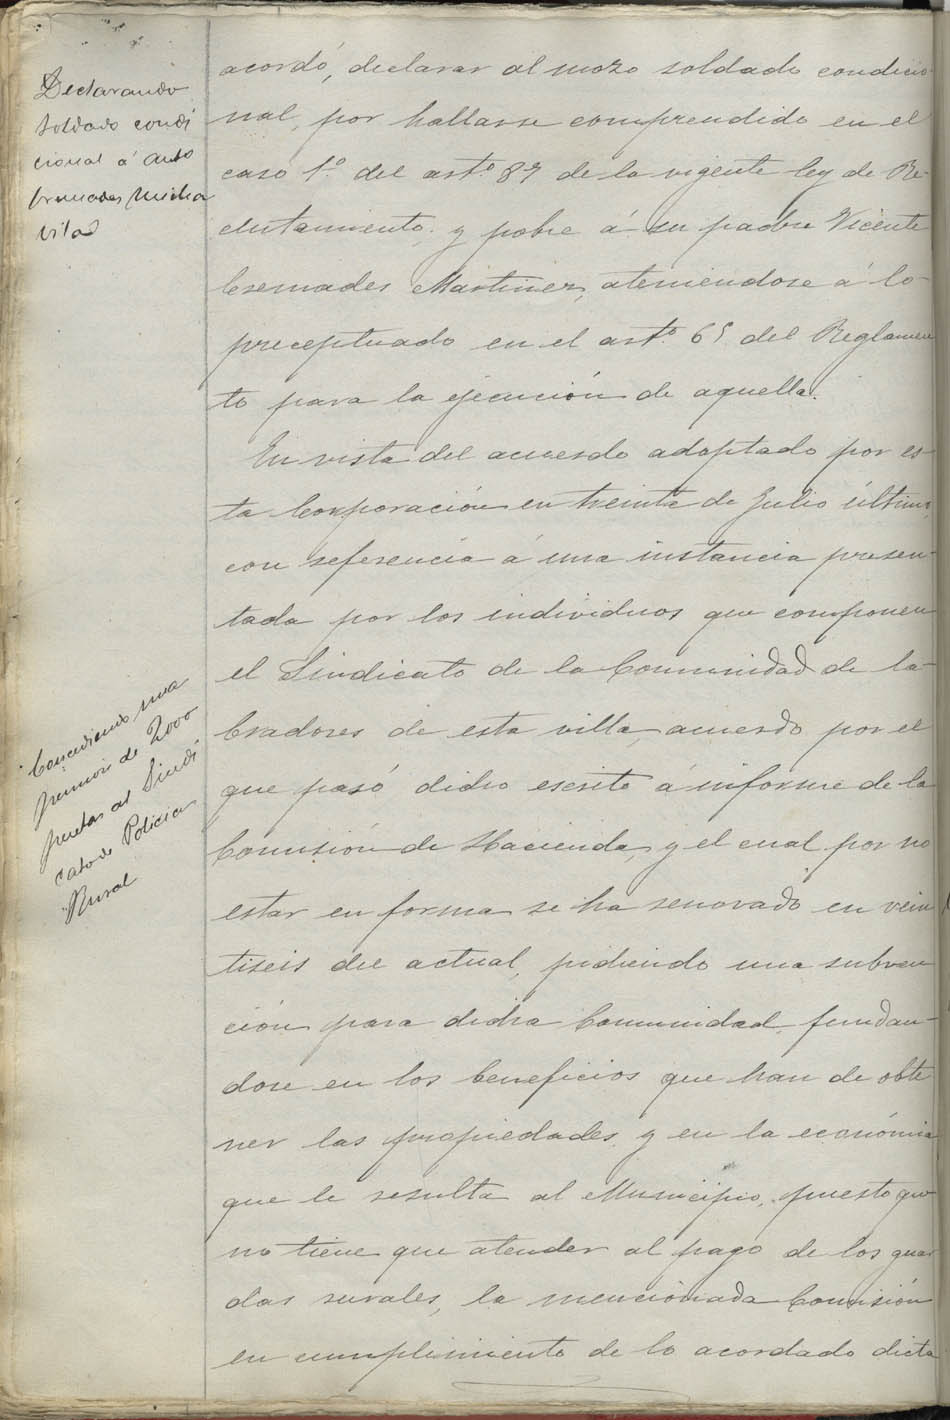 Declarando
soldado condi
cional á Anto
Cremades Micha
vila
acordó, declarar al mozo soldado condicio-
nal, por hallarse comprendido en el
caso 1º del artº 87 de la vigente ley de Re-
clutamiento, y pobre á su padre Vicente
Cremades Martinez, ateniendose á lo
preceptuado en el artº 65 del Reglamen
to para la ejecución de aquella.
En vista del acuerdo adoptado por es-
ta Corporación en treinta de Julio último,
con referencia á una instancia presen-
tada por los individuos que componen
el Sindicato de la Comunidad de la-
bradores de esta villa, acuerdo por el
que pasó dicho escrito á informe de la
Comisión de Hacienda, y el cual por no
estar en forma se ha renovado en vein
tiseis del actual, pidiendo una subven
ción para dicha Comunidad, fundan-
dose en los beneficios que han de obte
ner las propiedades, y en la económia
que le resulta al Municipio, puesto que
no tiene que atender al pago de los guar
das rurales, la mencionada Comisión
en cumplimiento de lo acordado dicta
Concediendo una
de 2000
pesetas al Sindi
cato de Policia
Rural